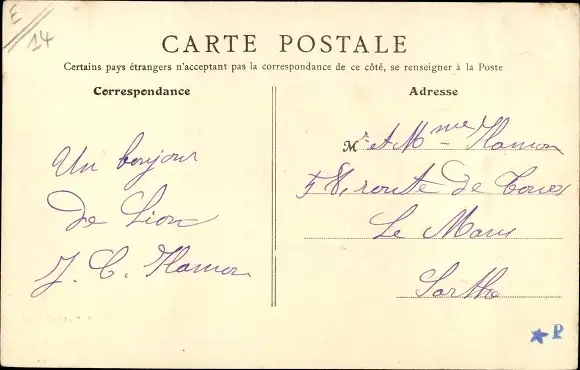 E
14
CARTE POSTALE
Certains pays étrangers n'acceptant pas la correspondance de ce côté, se renseigner à la Poste
Correspondance
Adresse
Un bonjour
de Lion
J. C. Hamon
Mr et Mme Hamon
58, route de Tours
Le Mans
Sarthe
P